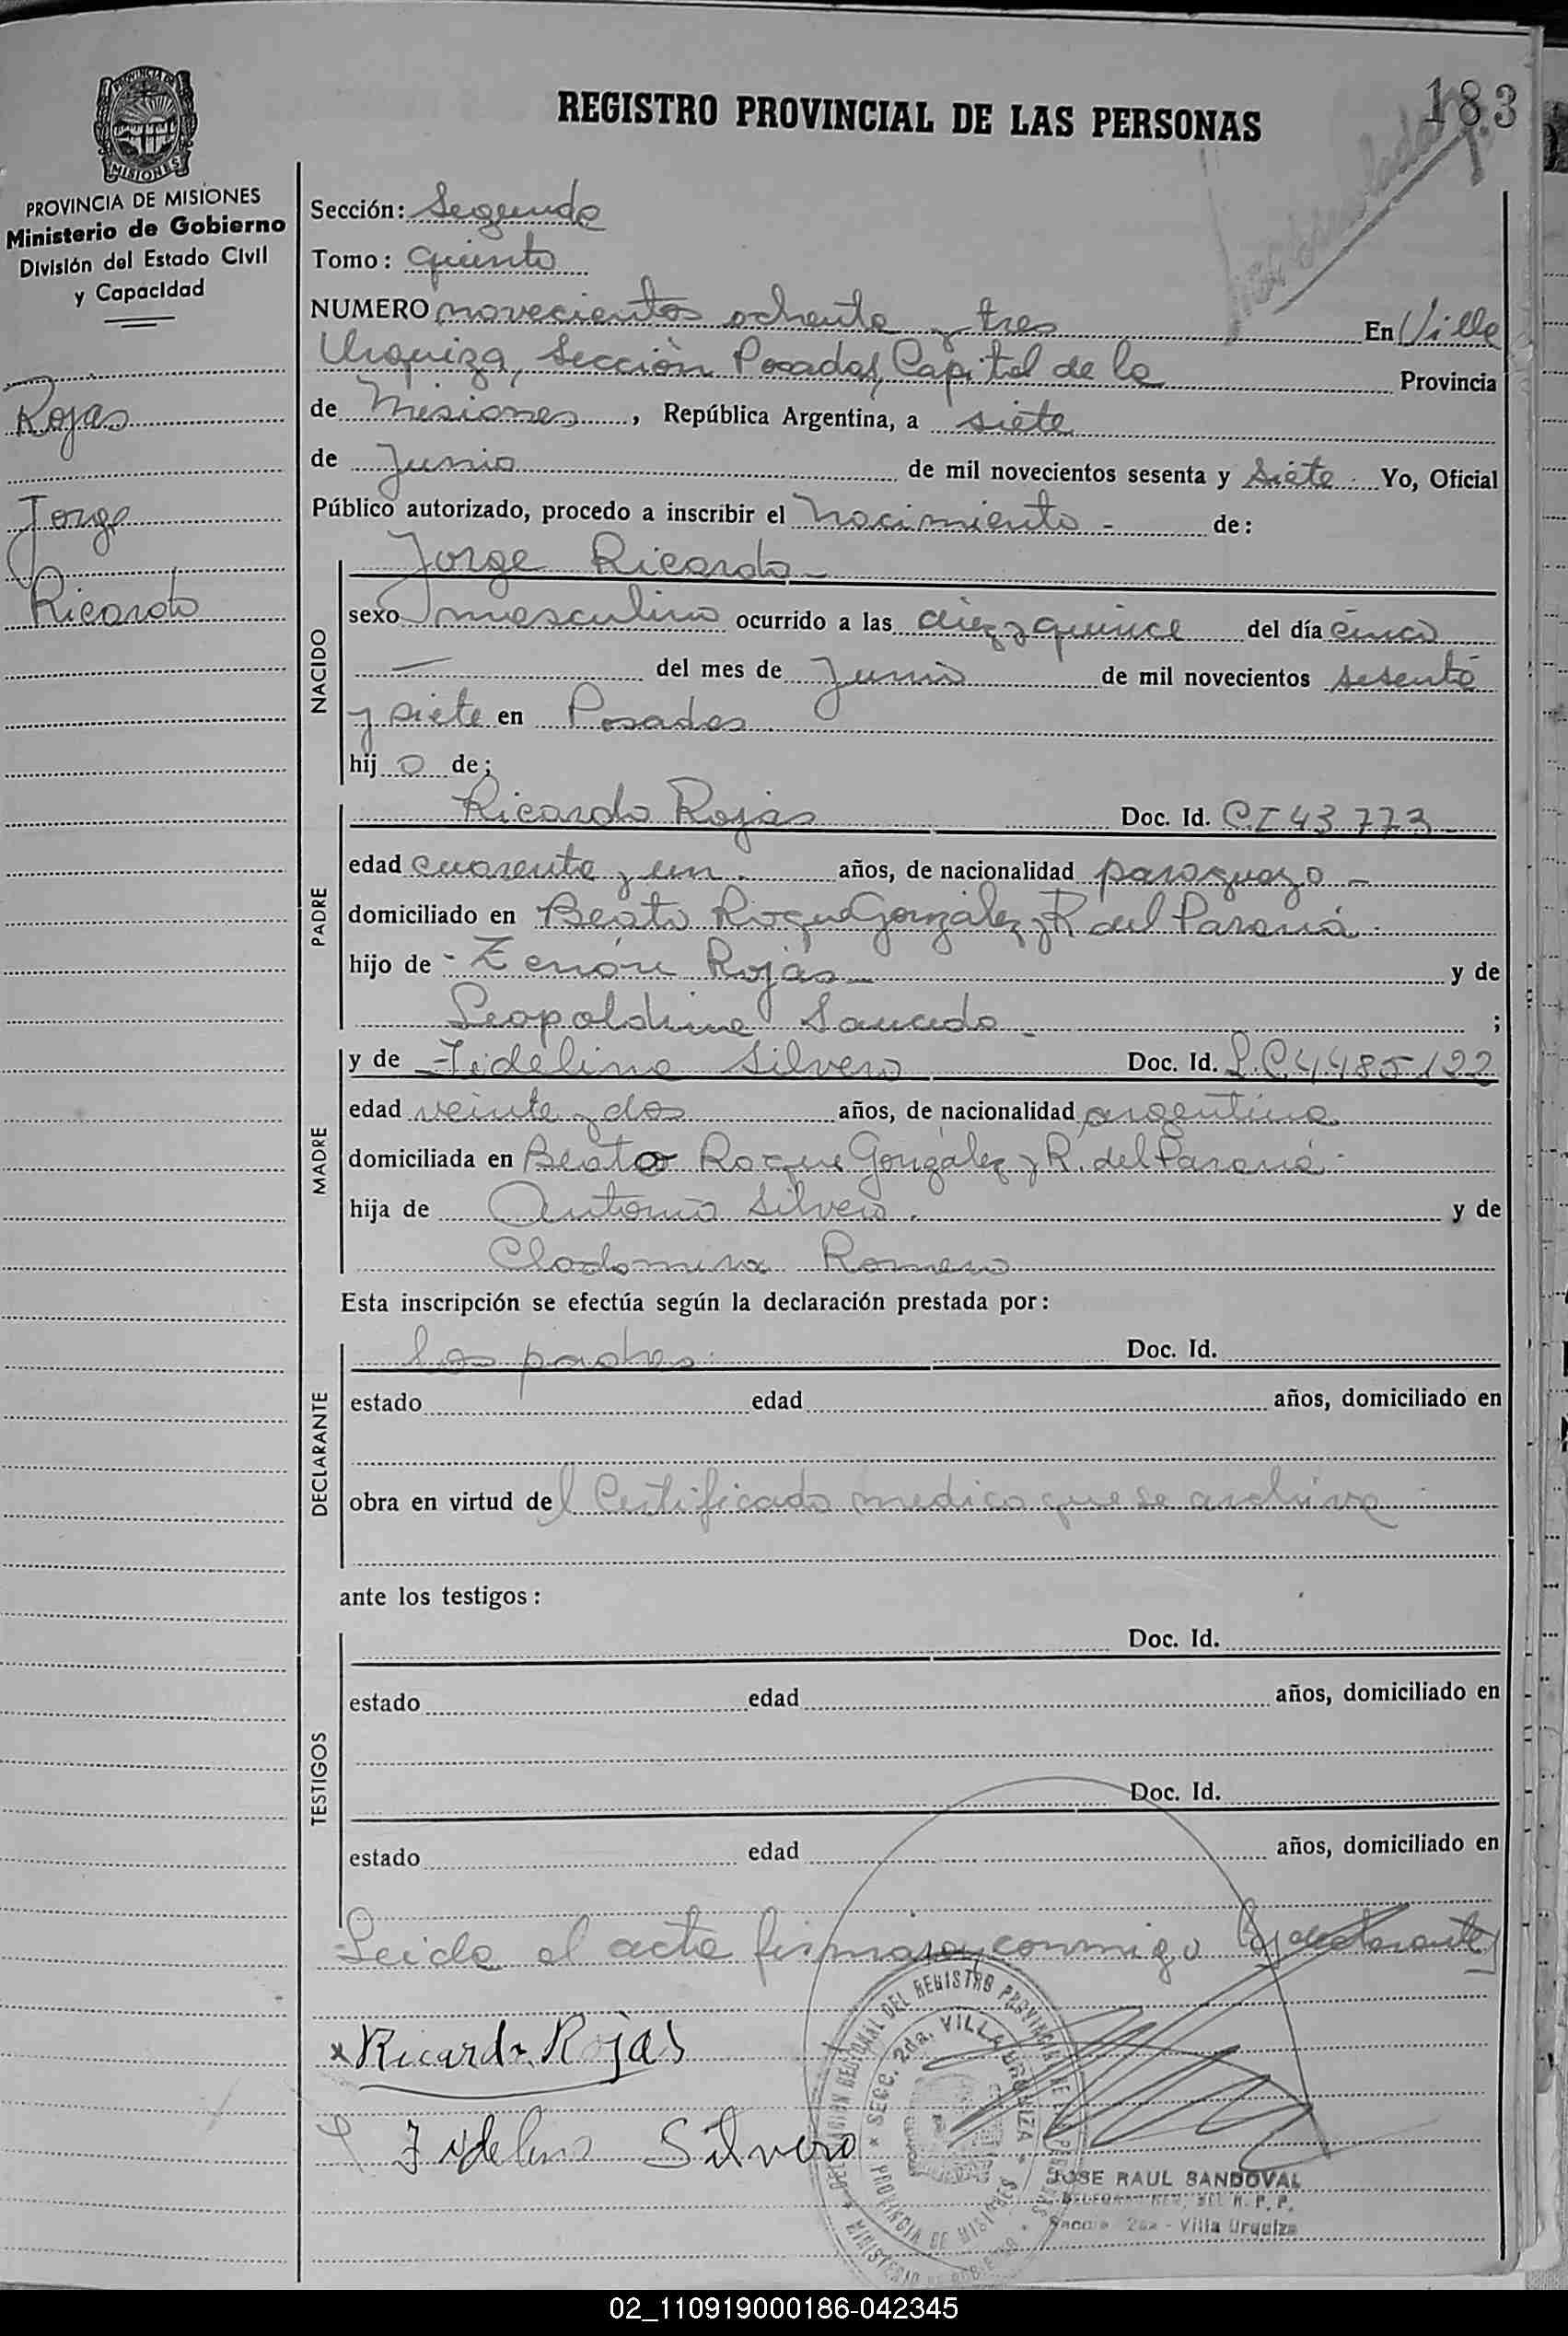 183
REGISTRO PROVINCIAL DE LAS PERSONAS
PROVINCIA DE MISIONES
MISIONES
PROVINCIA DE MISIONES
Ministerio de Gobierno
División del Estado Civil
y Capacidad
Rojas
Jorge
Ricardo
Sección: Segunda
Tomo: quinto
NUMERO novecientos ochenta y tres En Villa
Urquiza, Sección Posadas, Capital de la Provincia
de Misiones, República Argentina, a siete
de Junio de mil novecientos sesenta y siete. Yo, Oficial
Público autorizado, procedo a inscribir el nacimiento - de:
NACIDO
Jorge Ricardo -
sexo masculino ocurrido a las diez y quince del día cinco
— del mes de Junio de mil novecientos sesenta
y siete en Posadas
hijo de;
PADRE
Ricardo Rojas Doc. Id. C I 43 773
edad cuarenta y un - años, de nacionalidad paraguayo -
domiciliado en Beato Roque González y R del Paraná.
hijo de - Zenón Rojas - y de
Leopoldina Saucedo - ;
MADRE
y de Fidelina Silvero Doc. Id. L.C. 4.485.122
edad veinte y dos años, de nacionalidad argentina
domiciliada en Beato Roque González y R. del Paraná.
hija de Antonio Silvero. y de
Clodomira Romero
Esta inscripción se efectúa según la declaración prestada por:
DECLARANTE
los padres. Doc. Id.
estado edad años, domiciliado en
obra en virtud del Certificado medico que se archiva
ante los testigos:
TESTIGOS
Doc. Id.
estado edad años, domiciliado en
Doc. Id.
estado edad años, domiciliado en
Leida el acta firman conmigo los declarantes
x Ricardo Rojas
Fidelina Silvero
DELEGACION REGIONAL DEL REGISTRO PROVINCIAL DE LAS PERSONAS
SECC. 2da. VILLA URQUIZA
PROVINCIA DE MISIONES
MINISTERIO DE GOBIERNO
JOSE RAUL SANDOVAL
R. P. P.
2da - Villa Urquiza
02_110919000186-042345